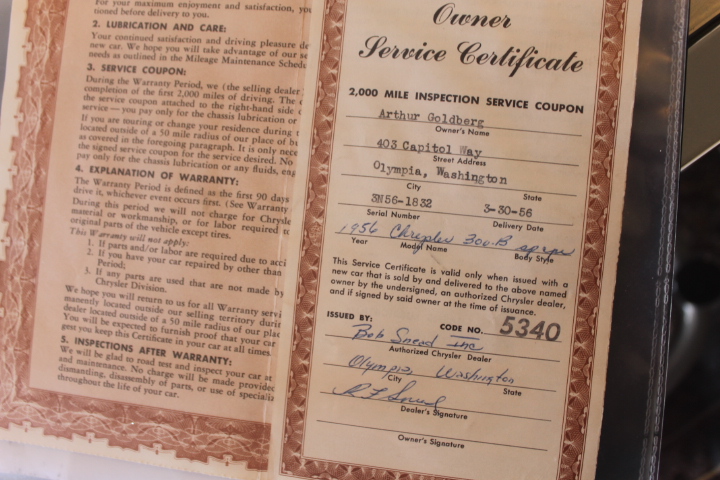 For your maximum enjoyment and satisfaction, yo
tioned before delivery to you.
2. LUBRICATION AND CARE:
Your continued satisfaction and driving pleasure de
new car. We hope you will take advantage of our se
needs as outlined in the Mileage Maintenance Schedu
3. SERVICE COUPON:
During the Warranty Period, we (the selling dealer
completion of the first 2,000 miles of driving. The
the service coupon attached to the right-hand side
service—you pay only for the chassis lubrication or
If you are touring or change your residence during t
located outside of a 50 mile radius of our place of bu
as covered in the foregoing paragraph. It is only nece
the signed service coupon for the service desired. No
pay only for the chassis lubrication or any fluids, eng
4. EXPLANATION OF WARRANTY:
The Warranty Period is defined as the first 90 days
drive it, whichever event occurs first. (See Warranty
During this period we will not charge for Chrysle
material or workmanship, or for labor required to
original parts of the vehicle except tires.
This Warranty will not apply:
1. If parts and/or labor are required due to acci
2. If you have your car repaired by other than
Period;
3. If any parts are used that are not made by
Chrysler Division.
We hope you will return to us for all Warranty servi
manently located outside our selling territory durin
dealer located outside of a 50 mile radius of our plac
You will be expected to furnish proof that your car
gest you keep this Certificate in your car at all times.
5. INSPECTIONS AFTER WARRANTY:
We will be glad to road test and inspect your car at
and maintenance. No charge will be made provided
dismantling, disassembly of parts, or use of specializ
throughout the life of your car.
Owner
Service Certificate
2,000 MILE INSPECTION SERVICE COUPON
Arthur Goldberg
Owner's Name
403 Capitol Way
Street Address
Olympia, Washington
City State
3N56-1832 3-30-56
Serial Number Delivery Date
1956 Chrysler 300-B
Year Model Name Body Style
This Service Certificate is valid only when issued with a
new car that is sold by and delivered to the above named
owner by the undersigned, an authorized Chrysler dealer,
and if signed by said owner at the time of issuance.
ISSUED BY: CODE NO. 5340
Bob Snead Inc
Authorized Chrysler Dealer
Olympia, Washington
City State
Dealer's Signature
Owner's Signature